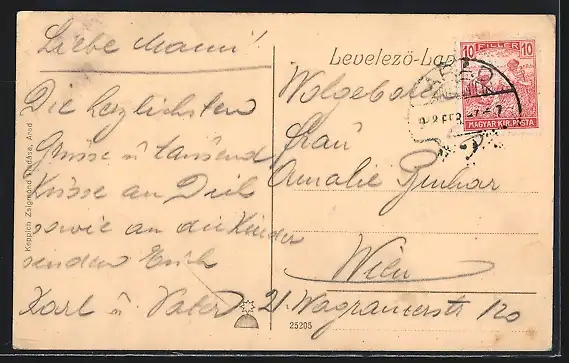 Liebe Mami!
Die herzlichsten
Grüsse u tausend
Küsse an Dich
sowie an die Kinder
senden Euch
Karl u Vater
Levelező-Lap
Wolgeboren
Frau
Amalie
Wien
21. Wagramerstr 120
10 FILLER 10
MAGYAR KIR. POSTA
ARAD
Keppich Zsigmond kiadása, Arad
25205